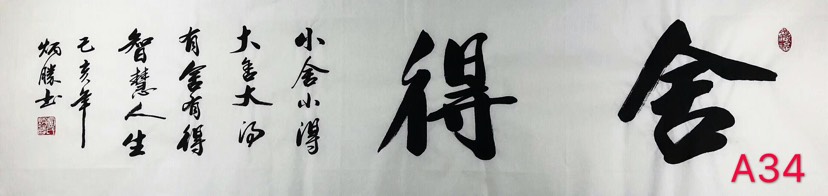 舍得
小舍小得
大舍大得
有舍有得
智慧人生
己亥年
炳勝书
A34